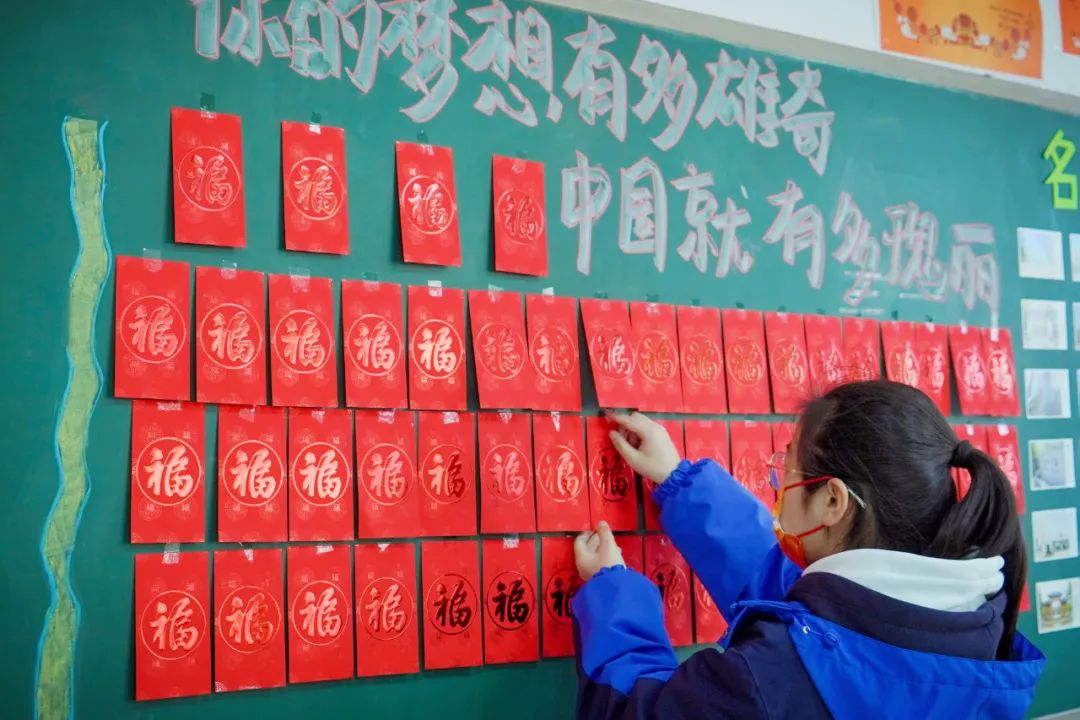 你的梦想有多雄奇
中国就有多瑰丽
名
福 福 福 福
福 福 福 福 福 福 福 福 福 福 福 福 福 福 福 福 福 福
福 福 福 福 福 福 福 福
福 福 福 福 福 福 福 福